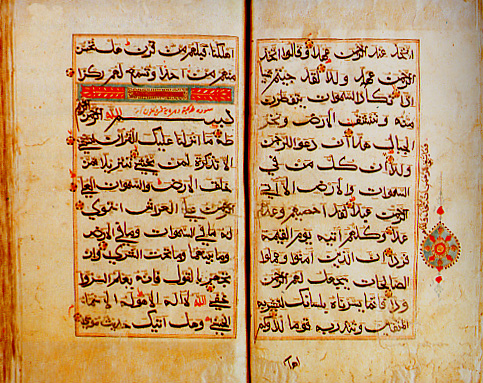 اتخذ عند الرحمن عهدا وقالوا اتخذ
الرحمن ولدا لقد جئتم
ادا تكاد السموات يتفطرن
منه وتنشق الارض وتخر
الجبال هدا ان دعوا للرحمن
ولدا ان كل من في
السموات والارض الا اتي
الرحمن عبدا لقد احصيهم وعد
عدا وكلهم اتيه يوم القيمة
فردا ان الذين امنوا وعملوا
الصالحات سيجعل لهم الرحمن
ودا فانما يسرناه بلسانك لتبشر به
المتقين وتنذر به قوما لدا وكم
اهلكنا قبلهم من قرن هل تحس
منهم من احد او تسمع لهم ركزا
بسم الله الرحمن
طه ما انزلنا عليك القران لتشقى
الا تذكرة لمن يخشى تنزيلا ممن
خلق الارض والسموات العلى
الرحمن على العرش استوى
له ما في السموات وما في الارض
وما بينهما وما تحت الثرى وان
تجهر بالقول فانه يعلم السر وا
خفى الله لا اله الا هو له الاسماء
الحسنى وهل اتيك حديث موسى